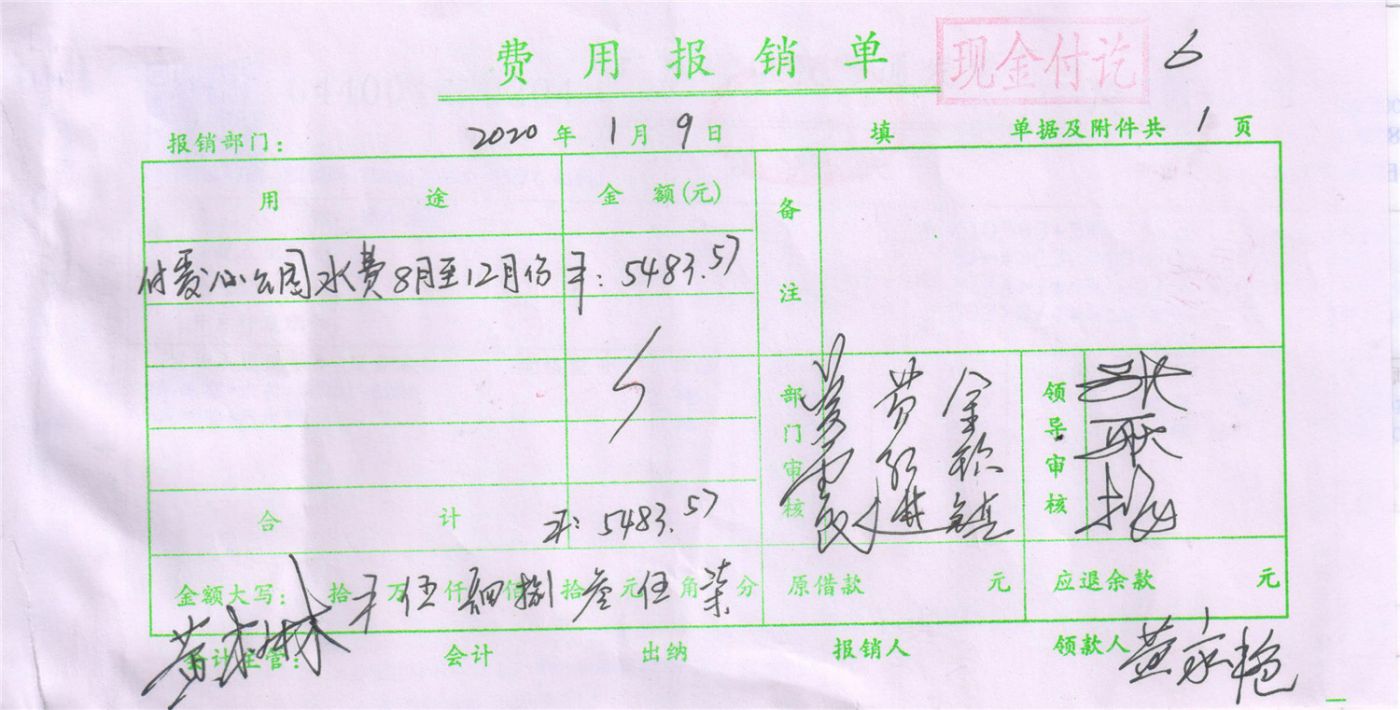 费用报销单 现金付讫 6
报销部门： 2020年1月9日 填 单据及附件共1页
用途 金额(元) 备注
付爱心公园水费8月至12月份 ￥：5483.57
部门审核 领导审核
合计 ￥：5483.57
金额大写： 拾 万伍仟肆佰捌拾叁元伍角柒分 原借款 元 应退余款 元
会计主管： 会计 出纳 报销人 领款人 黄家艳